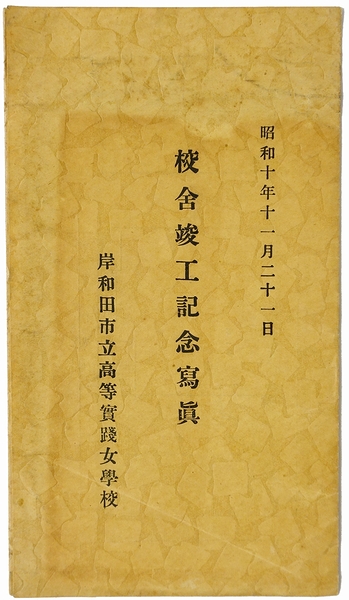 昭和十年十一月二十一日
校舍竣工記念寫眞
岸和田市立高等實踐女學校